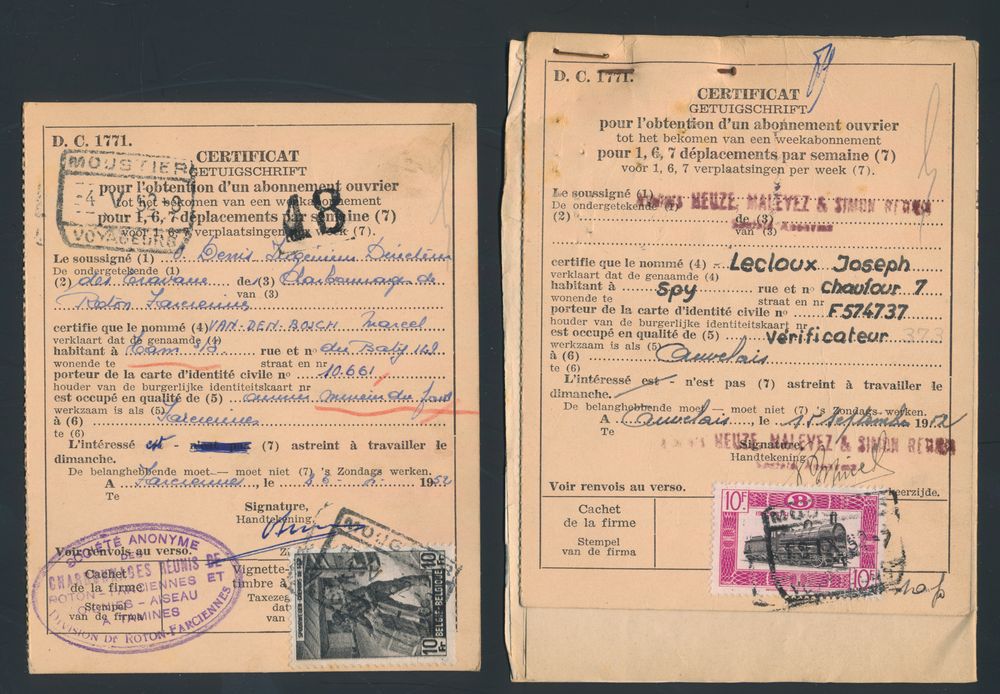 D. C. 1771.
MOUSTIER
-4 V 52-9
VOYAGEURS
CERTIFICAT
GETUIGSCHRIFT
pour l'obtention d'un abonnement ouvrier
tot het bekomen van een weekabonnement
pour 1, 6, 7 déplacements par semaine (7)
voor 1, 6, 7 verplaatsingen per week (7).
48
Le soussigné (1) Denis Ingénieur Directeur
De ondergetekende (1)
(2) des travaux de (3) Charbonnages de
van (3)
Roton Farciennes
certifie que le nommé (4) VAN-DEN-BOSCH Marcel
verklaart dat de genaamde (4)
habitant à Ham s/s rue et no du Baty
wonende te straat en nr
porteur de la carte d'identité civile no 10.661
houder van de burgerlijke identiteitskaart nr
est occupé en qualité de (5) ouvrier mineur du fond
werkzaam is als (5)
à (6) Farciennes
te (6)
L'intéressé est (7) astreint à travailler le
dimanche.
De belanghebbende moet — moet niet (7) 's Zondags werken.
A Farciennes, le 1952
Te
Signature,
Handtekening,
Voir renvois au verso.
Cachet
de la firme
Stempel
van de firma
SOCIÉTÉ ANONYME
DES
CHARBONNAGES RÉUNIS DE
ROTON-FARCIENNES ET
OIGNIES-AISEAU
A TAMINES
DIVISION DE ROTON-FARCIENNES
Vignette-
timbre à
Taxezeg
dat
10 Fr
BELGIE-BELGIQUE
10 Fr
D. C. 1771.
CERTIFICAT
GETUIGSCHRIFT
pour l'obtention d'un abonnement ouvrier
tot het bekomen van een weekabonnement
pour 1, 6, 7 déplacements par semaine (7)
voor 1, 6, 7 verplaatsingen per week (7).
Le soussigné (1)
De ondergetekende (1) HEUZE, MALEVEZ & SIMON REUNIS
(2) de (3)
van (3)
Société Anonyme
certifie que le nommé (4) Lecloux Joseph
verklaart dat de genaamde (4)
habitant à Spy rue et no Chaufour 7
wonende te straat en nr
porteur de la carte d'identité civile no F574737
houder van de burgerlijke identiteitskaart nr
est occupé en qualité de (5) vérificateur 373
werkzaam is als (5)
à (6) Auvelais
te (6)
L'intéressé est - n'est pas (7) astreint à travailler le
dimanche.
De belanghebbende moet — moet niet (7) 's Zondags werken.
A Auvelais le 15 Septembre 1952
Te
HEUZE, MALEVEZ & SIMON REUNIS
Société Anonyme
Signature,
Handtekening,
Voir renvois au verso.
eerzijde.
Cachet
de la firme
Stempel
van de firma
10F
B
10F